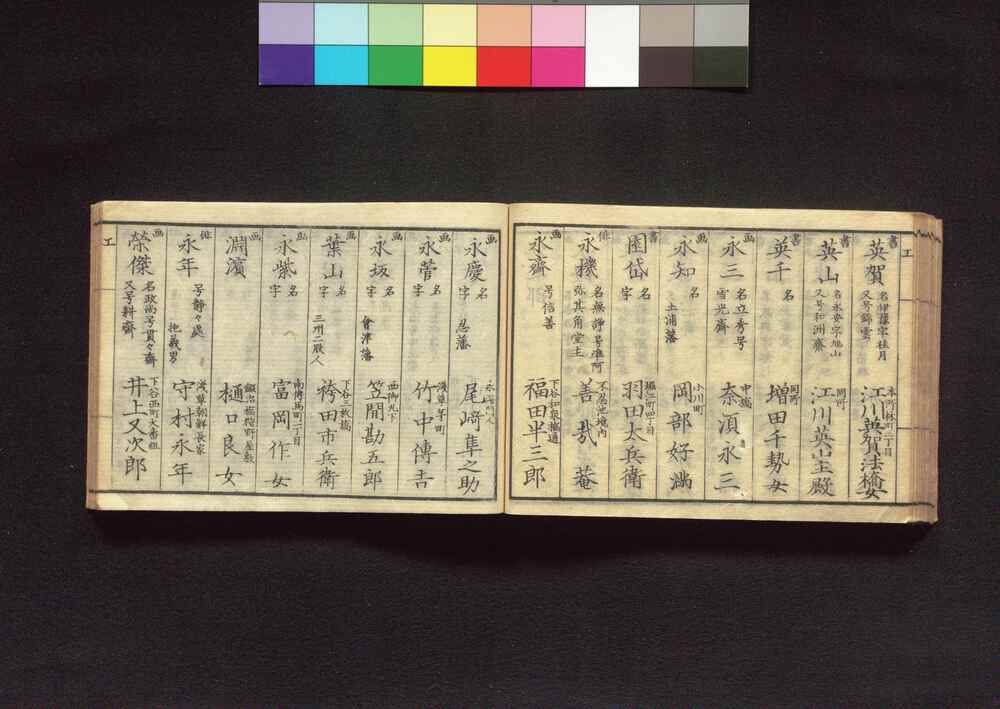 エ
書 英賀 名伊藤字桂月 又号錦雲 本所林町二丁目 江川英賀法橋女
書 英山 名永安字旭山 又号和洲齋 同町 江川英山主殿
書 英千 名 同所 増田千勢女
画 永三 名立秀号 雪光齋 中橋 奈須永三
画 永知 名 土浦藩 小川町 岡部好満
書 園岱 名 字 堀江町四丁目 羽田太兵衛
俳 永機 名無静号準阿 弥其角堂主 不忍池境内 善哉菴
画 永齋 号信善 下谷和泉橋通 福田半三郎
画 永慶 名 字 忍藩 尾﨑隼之助
画 永菅 名 字 浅草茅町 竹中傳吉
画 永坂 名 字 會津藩 西御丸下 笠間勘五郎
画 葉山 名 字 三州二股人 下谷三枚橋 袴田市兵衛
画 永紫 名 字 南傳馬町二丁目 富岡作女
画 淵濱 鍛冶橋狩野屋敷 樋口良女
俳 永年 号静々處 抱義男 浅草朝鮮長家 守村永年
画 榮傑 名政満号貫々齋 又号耕齋 下谷西町大番組 井上又次郎
エ